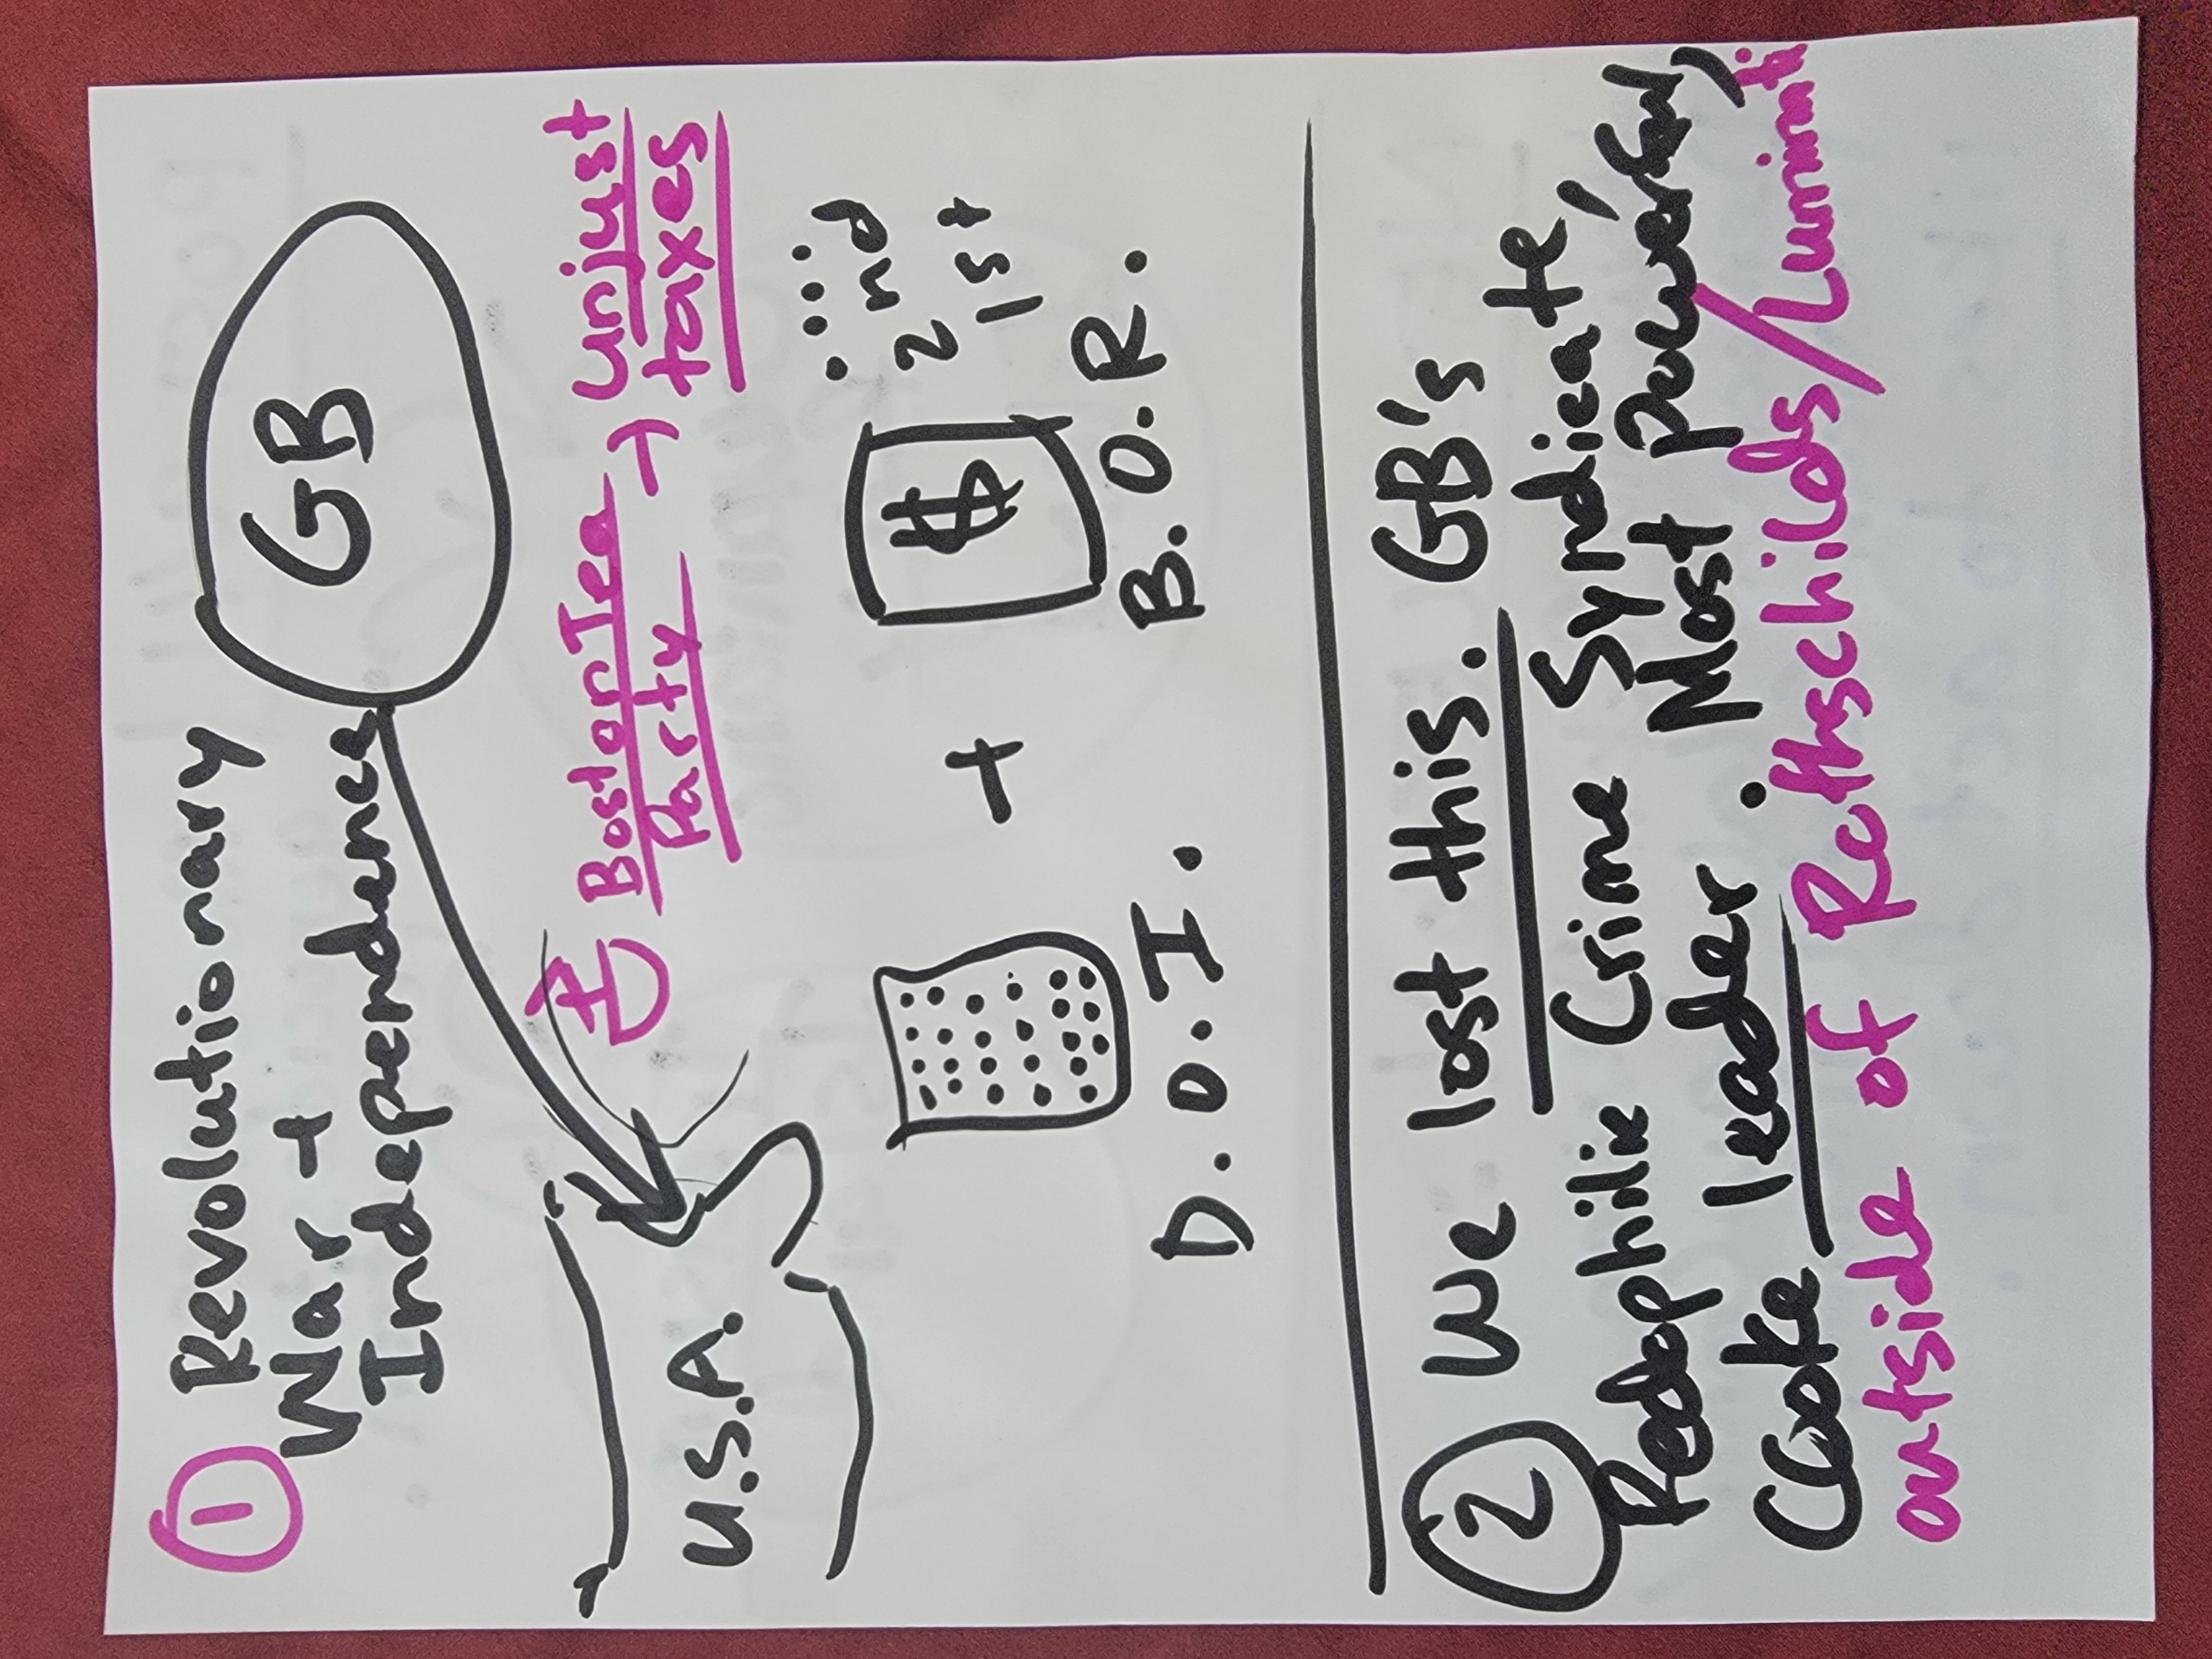 1 Revolutionary
War +
Independence
GB
U.S.A.
Boston Tea
Party
→ unjust
taxes
....
2nd
1st
$
+
D.O.I.
B.O.R.
2 We lost this. GB's
Pedophilic Crime Syndicate,
leader. Most powerful,
outside of Rothschilds/Luminati